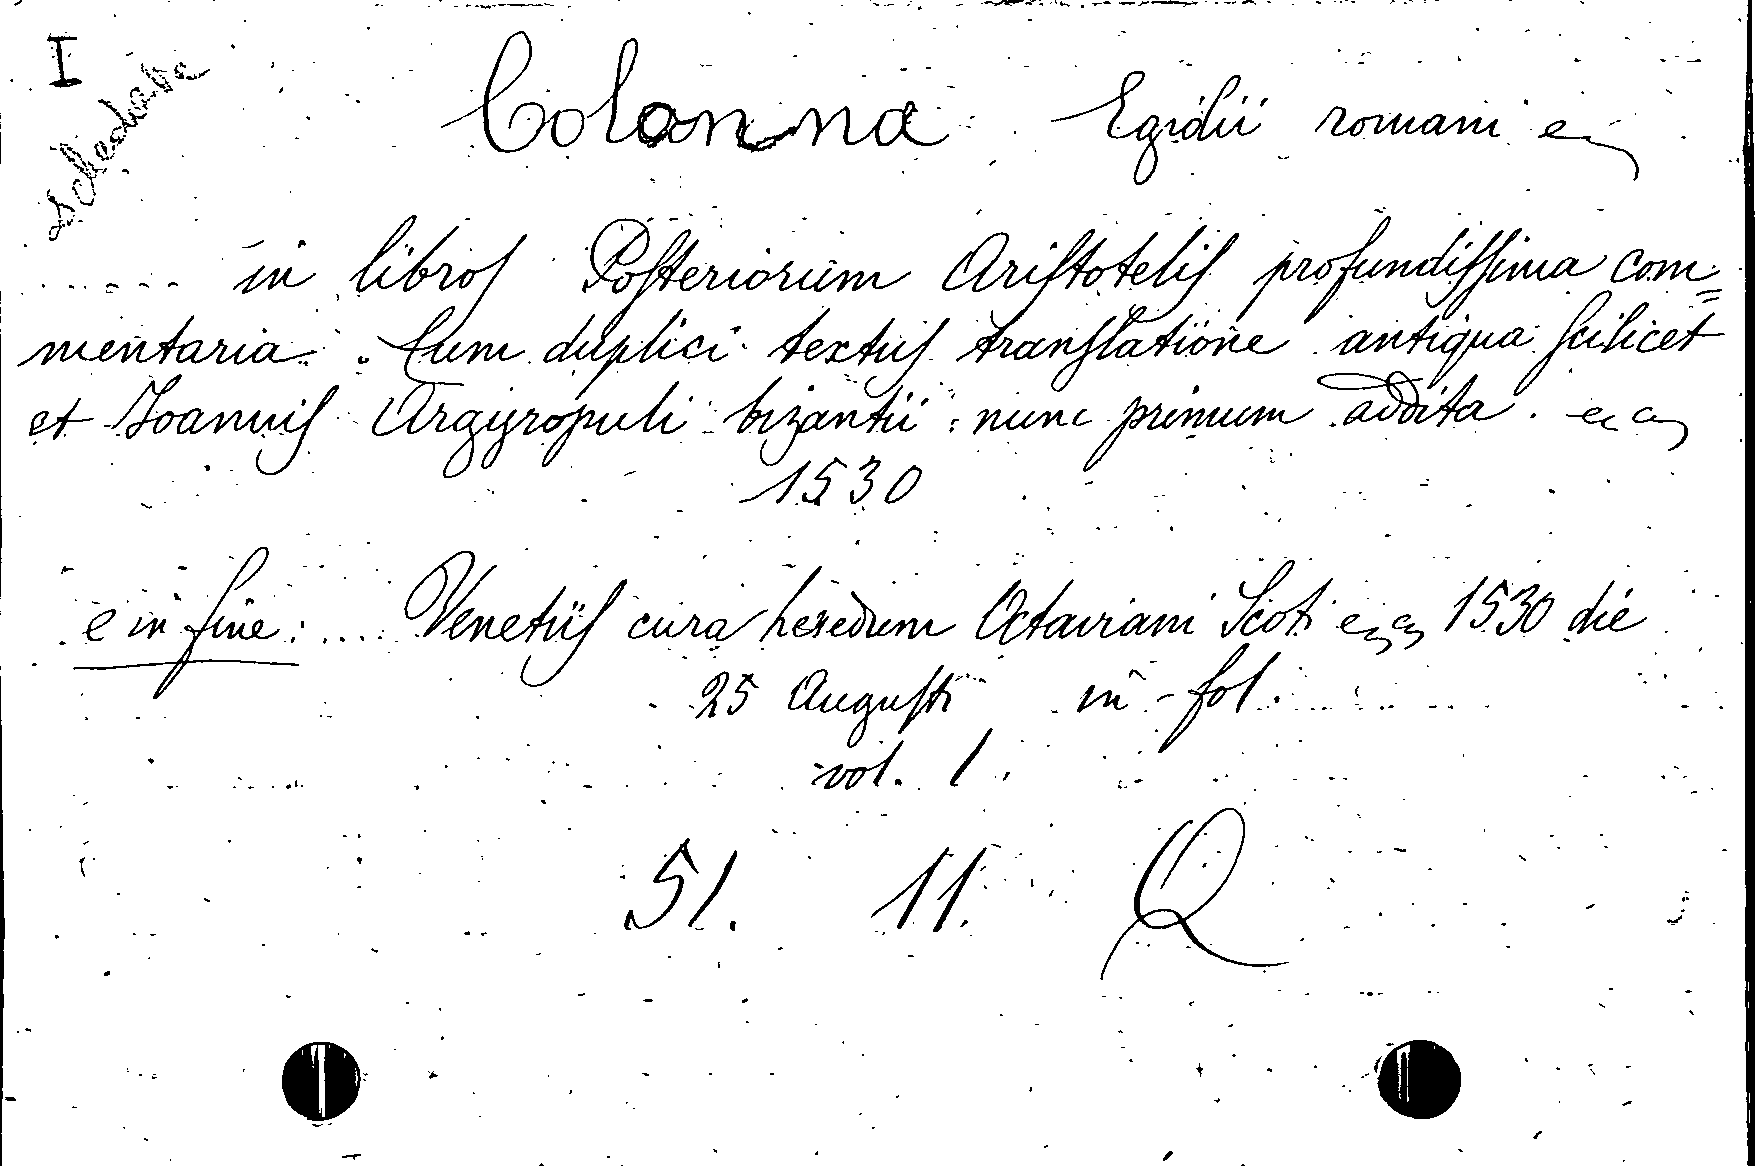 I
schedate
Colonna Egidii romani ec
in libros Posteriorum Aristotelis profundissima com=
mentaria. Cum duplici textus translatione antiqua scilicet
et Joannis Argyropuli bizantii nunc primum addita. ec ec
1530
e in fine: .... Venetiis cura heredum Octaviani Scoti ec ec 1530 die
25 Augusti in-fol.
vol. 1.
51. 11. Q